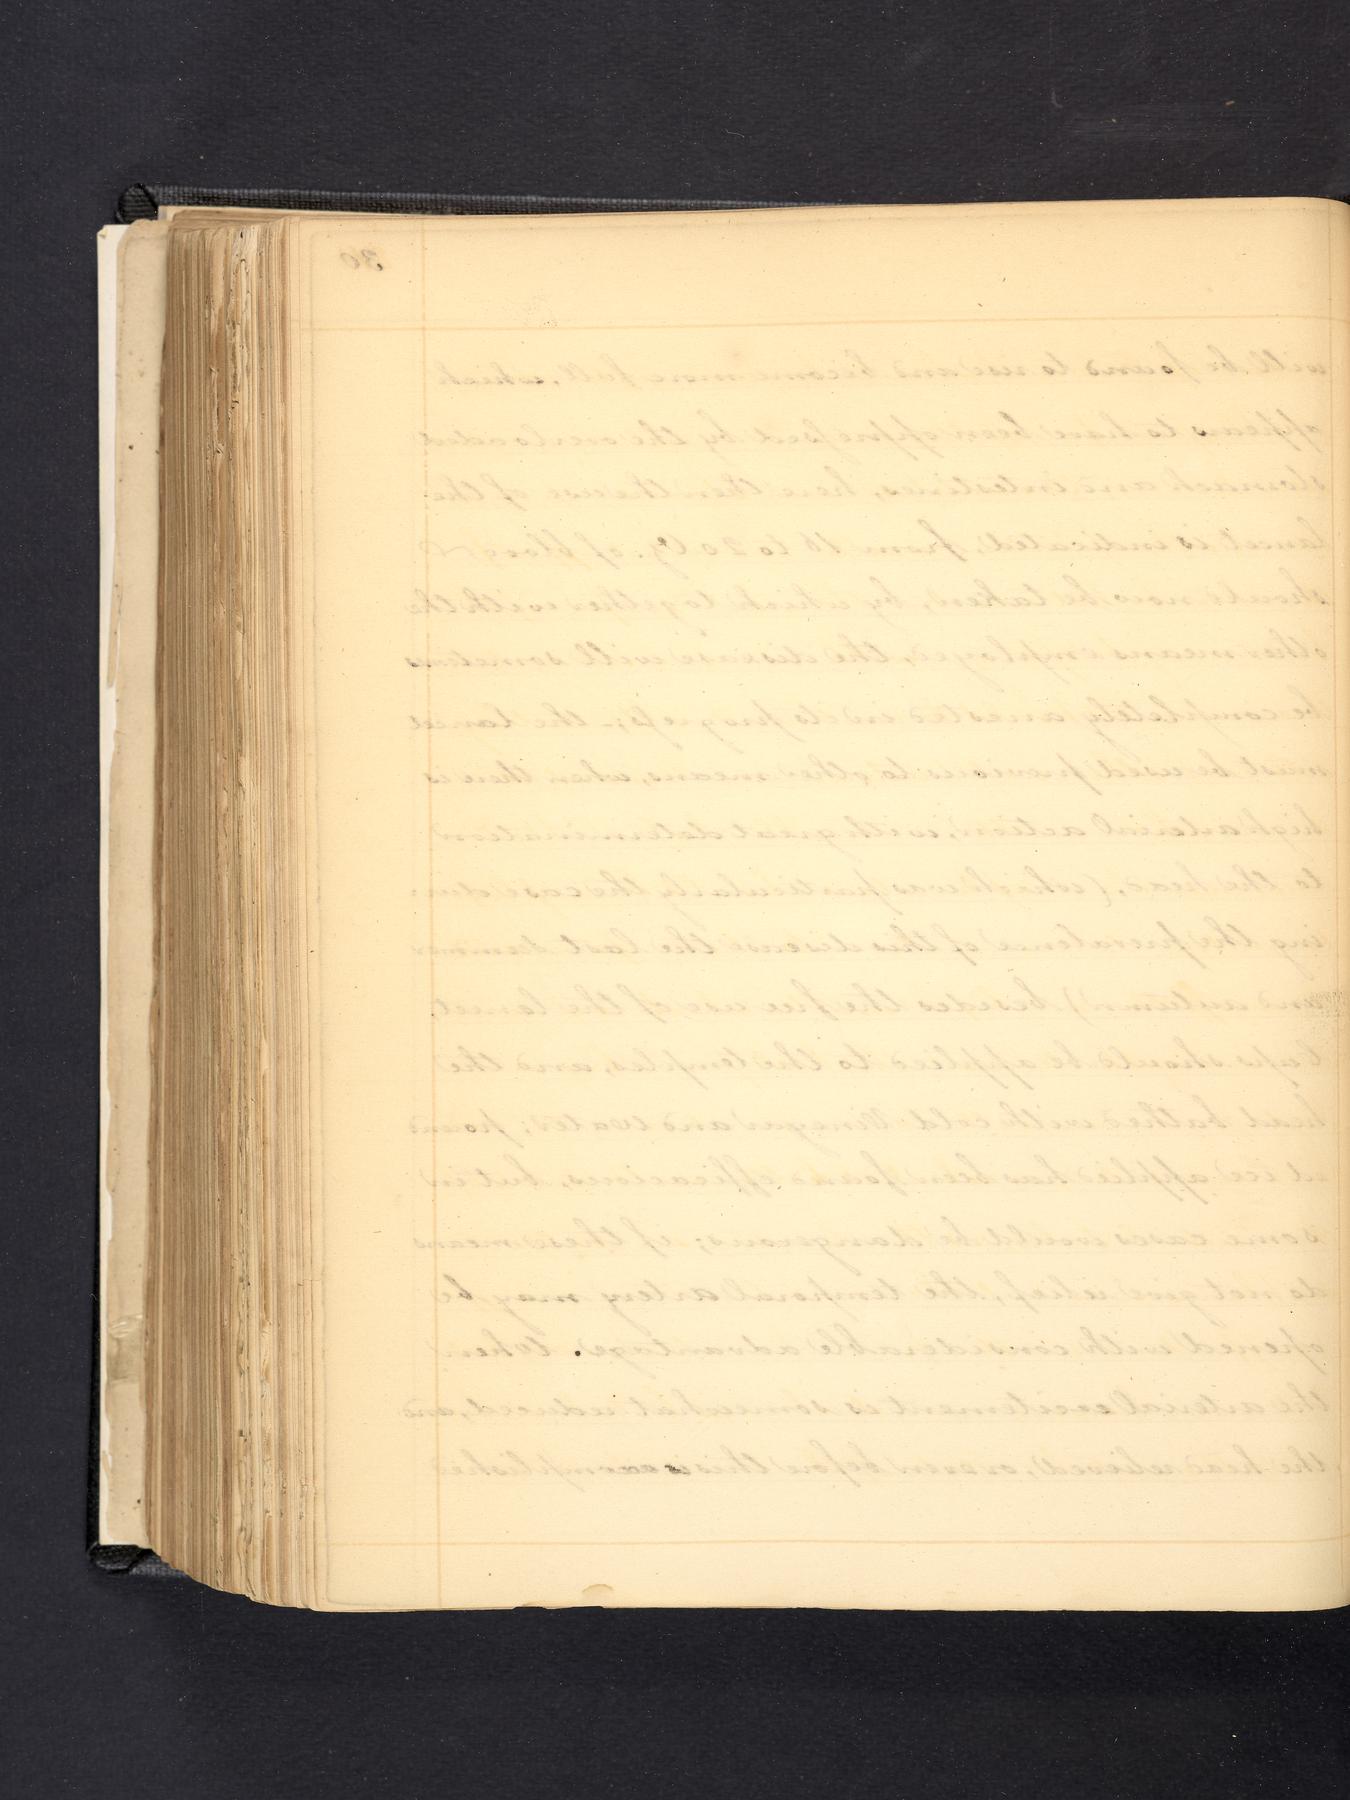 30
will be found to rise and become more full, which
appears to have been oppressed by the overloaded
stomach and intestines, here then the use of the
lancet is indicated, from 16 to 20 oz. of blood
should now be taken, by which together with the
other means employed, the disease will sometimes
be completely arrested in its progress; - the lancet
must be used previous to other means, when there is
high arterial action, with great determination
to the head, (which was particularly the case dur-
ing the prevalence of this disease the last summer
and autumn) besides the free use of the lancet,
Cups should be applied to the temples, and the
head bathed with cold Vinegar and water; pound
ed ice applied has been found efficacious, but in
some cases would be dangerous; if these means
do not give relief, the temporal artery may be
opened with considerable advantage. When
the arterial excitement is somewhat reduced, and
the head relieved, or even before this is accomplished